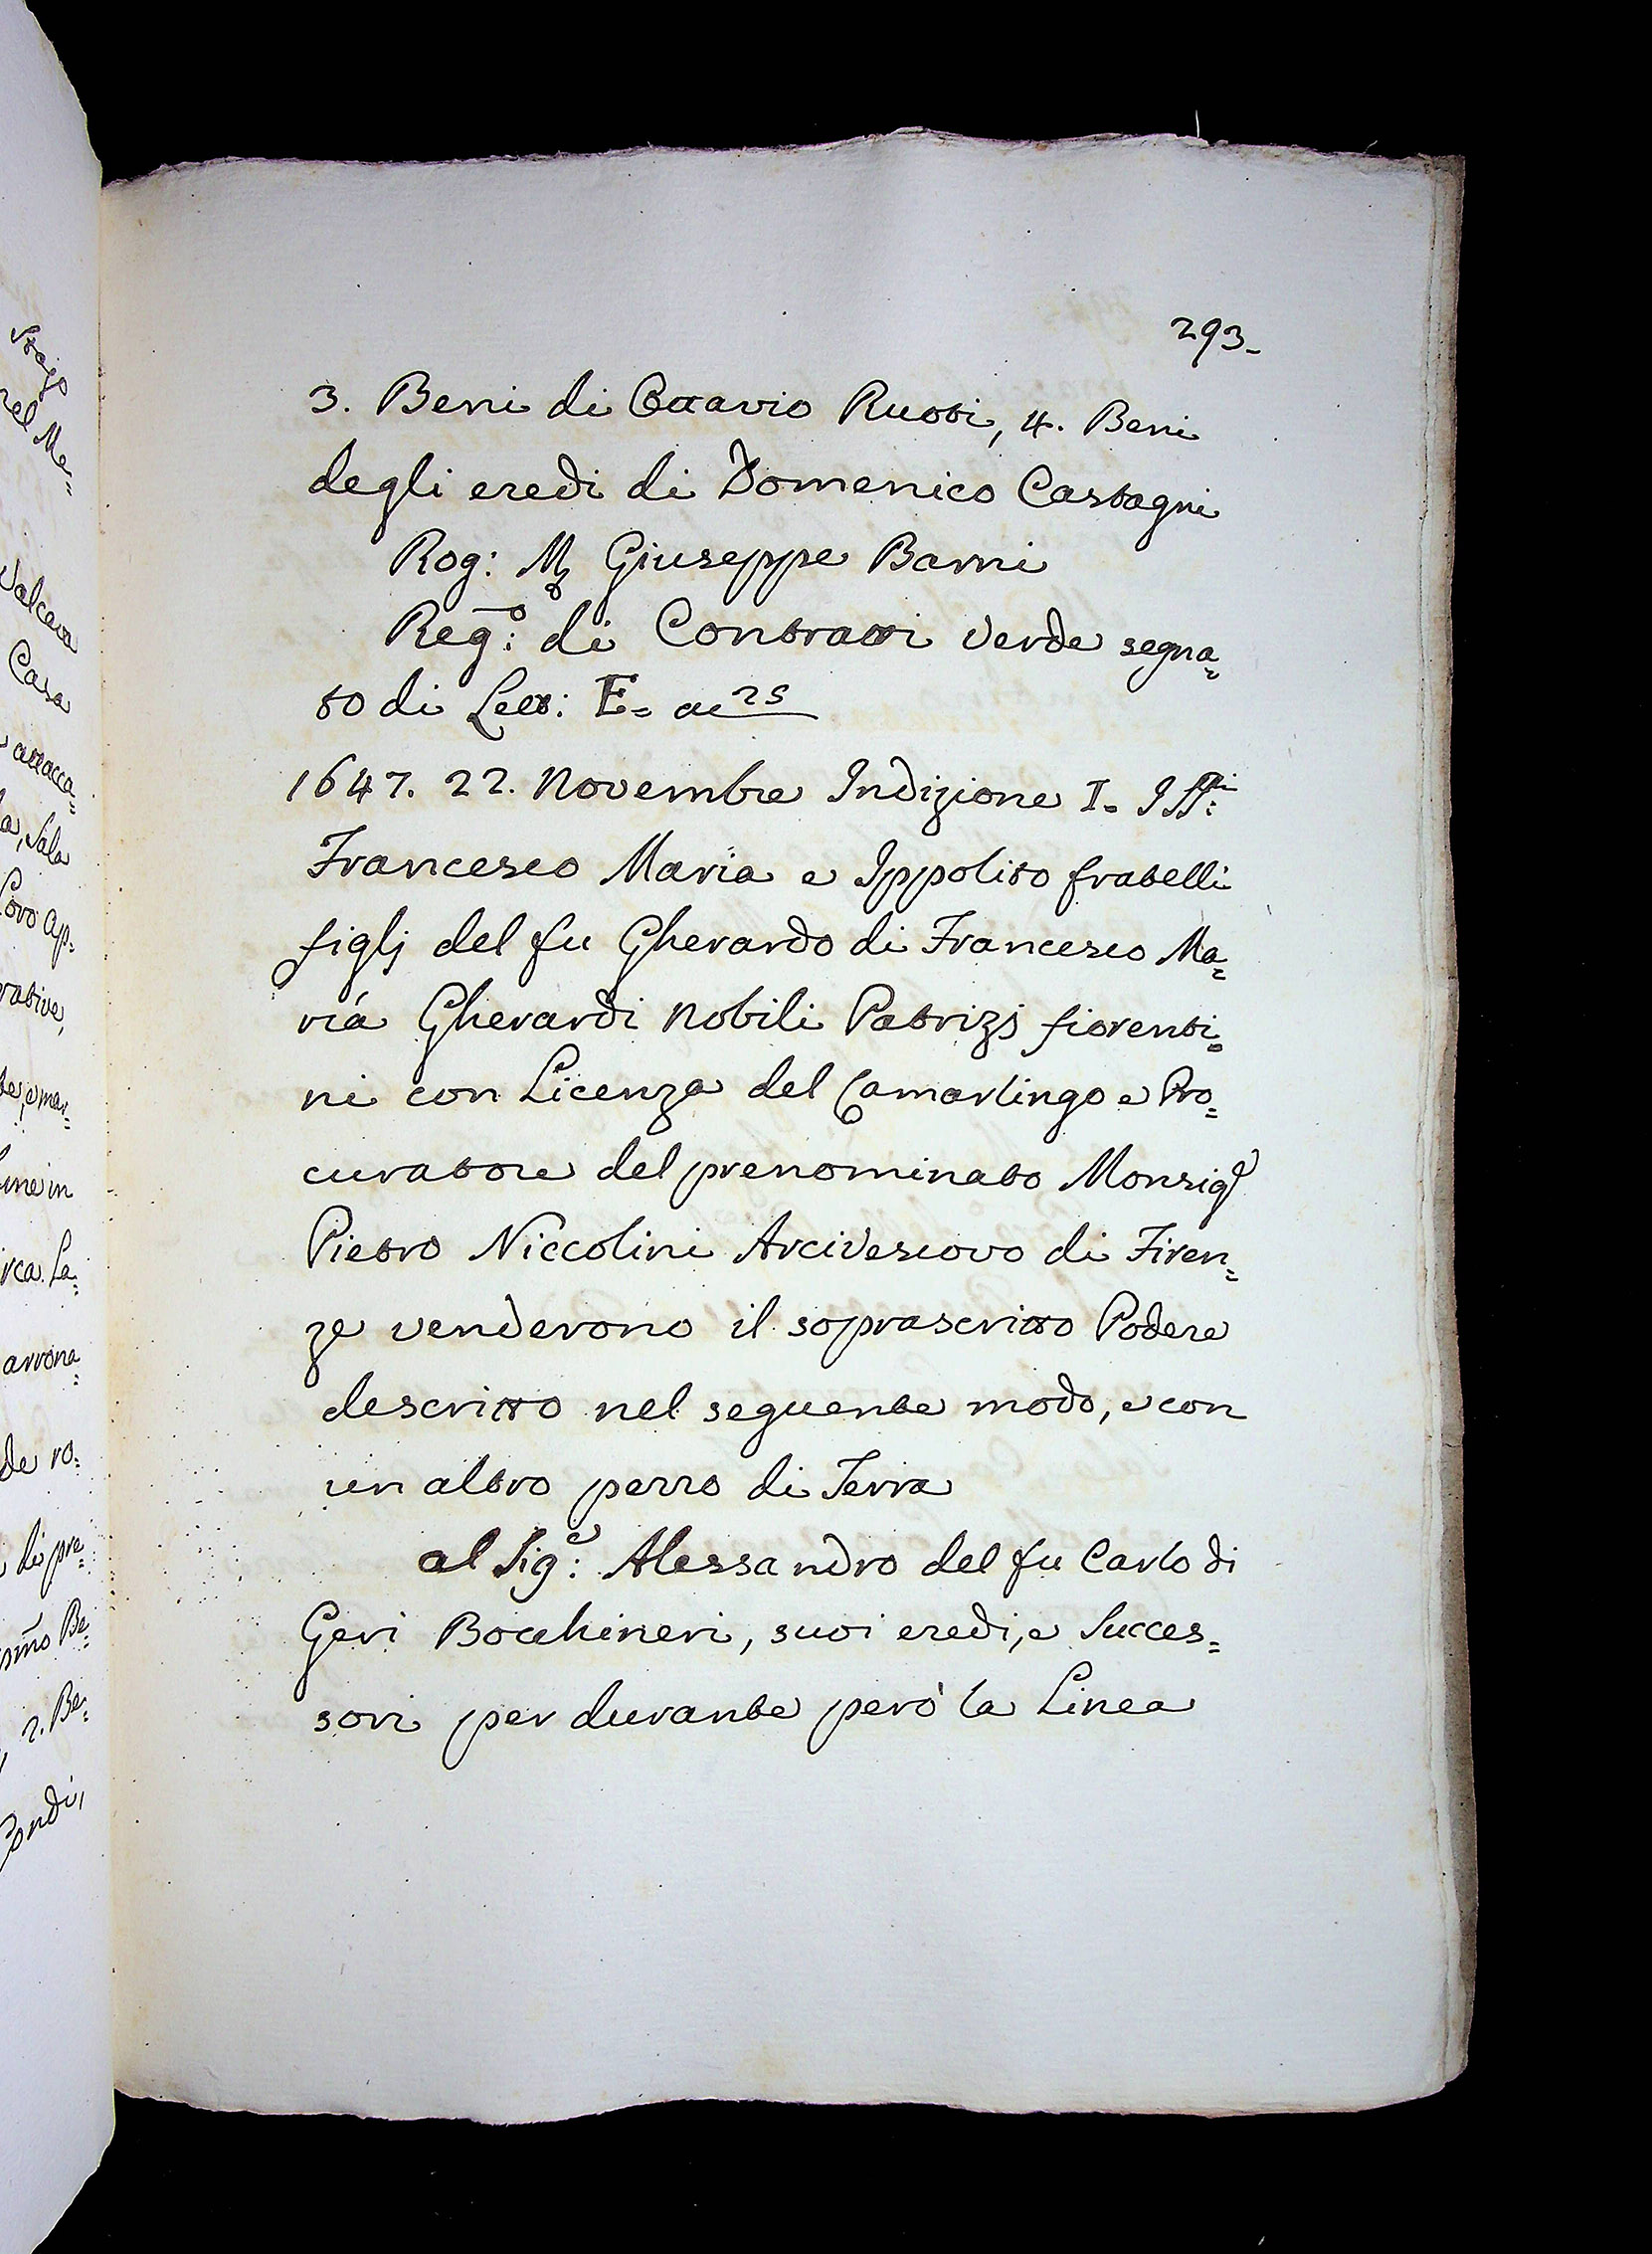 293-
3. Beni di Ottavio Ruoti, 4. Beni
degli eredi di Domenico Castagni
Rog: Giuseppe Barni
Reg:o di Contratti Verde segna=
to di Lett: E= a 25
1647. 22. Novembre Indizione I.
Francesco Maria e Ippolito fratelli
figlj del fu Gherardo di Francesco Ma=
ria Gherardi Nobili Patrizj fiorenti=
ni con Licenza del Camarlingo e Pro=
curatore del prenominato Monsigr
Pietro Niccolini Arcivescovo di Firen=
ze venderono il soprascritto Podere
descritto nel seguente modo, e con
un altro pezzo di Terra
al Sig:e Alessandro del fu Carlo di
Geri Bocchineri, suoi eredi, e Succes=
sori per durante però la Linea
Casa
attacca=
a, Sala
Loro Ap=
rative,
ine in
rca. La=
de ro=
di pre=
2. Be=